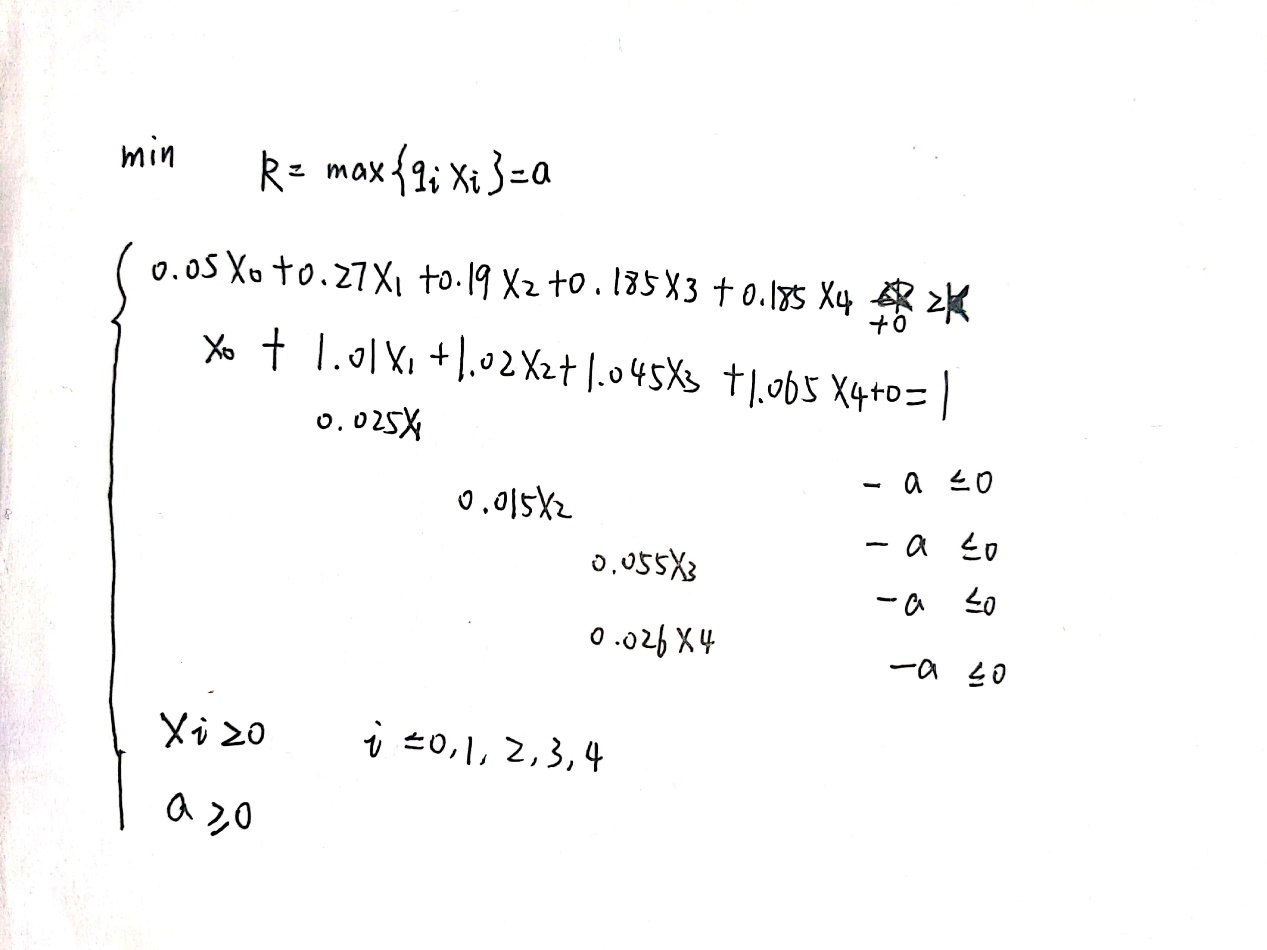 min R= max{qi Xi}=a
0.05 X0 +0.27X1 +0.19 X2 +0.185X3 + 0.185 X4 +0 ≥k
X0 + 1.01X1 +1.02X2+1.045X3 +1.065 X4+0= 1
0.025X1 - a ≤0
0.015X2 - a ≤0
0.055X3 -a ≤0
0.026 X4 -a ≤0
Xi ≥0 i =0,1, 2,3,4
a ≥0